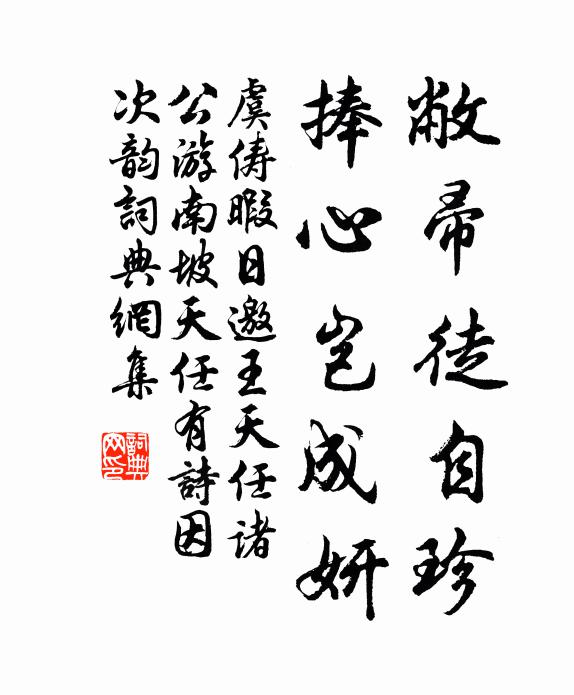 敝帚徒自珍
捧心岂成妍
虞俦暇日邀王天任诸
公游南坡天任有詩因
次韵詞典網集
詞典网印